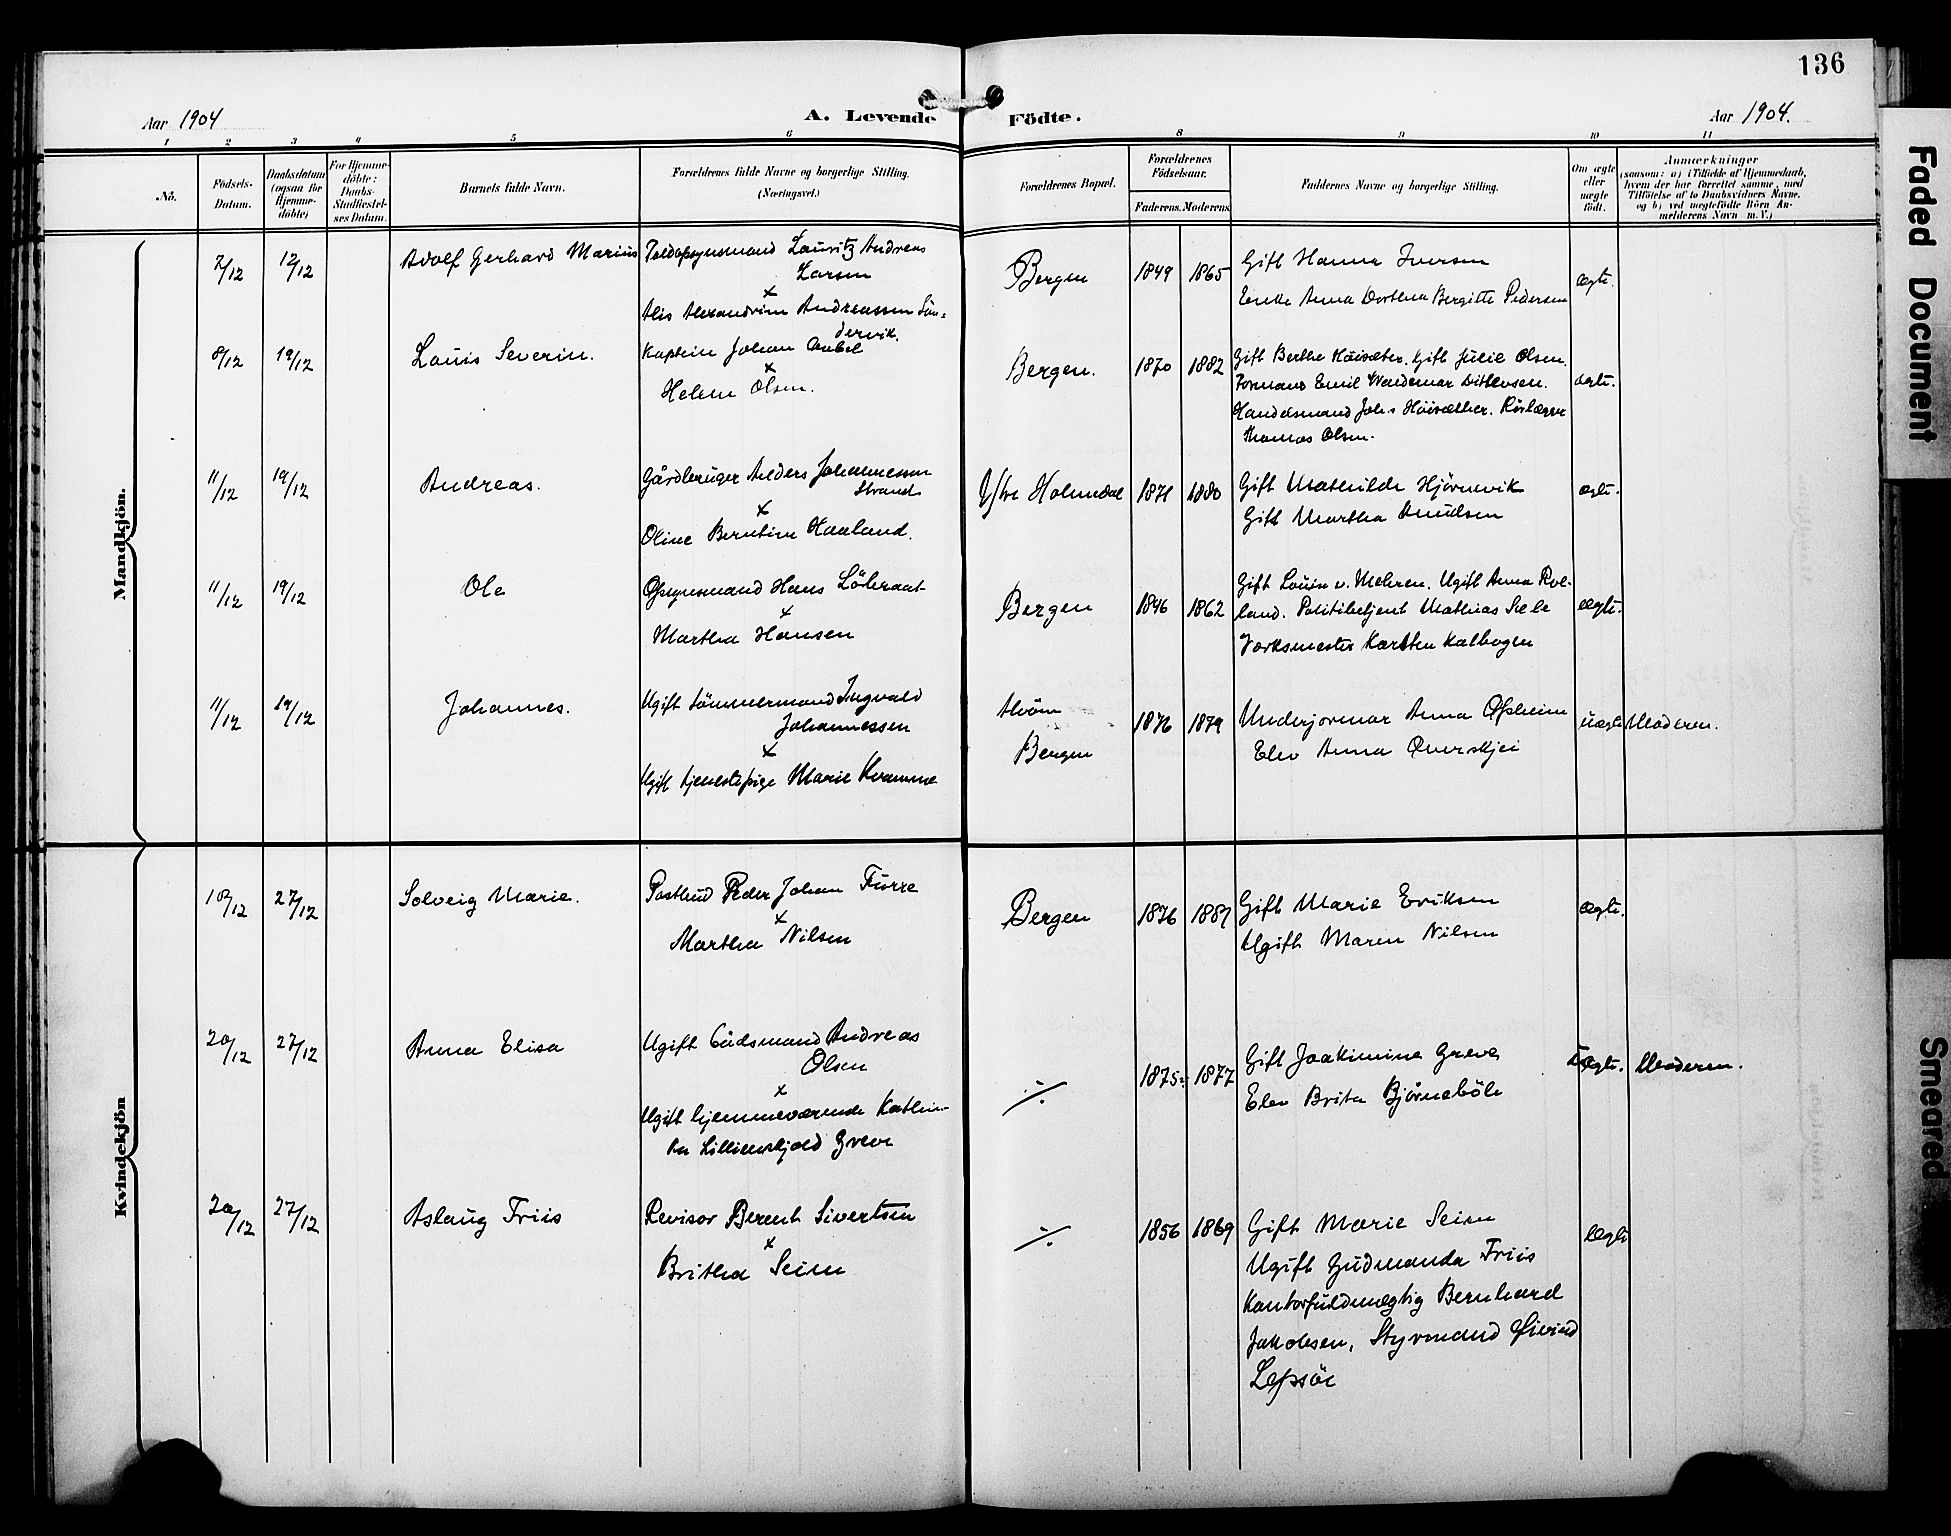 136
Aar 1904
A. Levende Födte.
Aar 1904.
1 2 3 4 5 6 8 9 10 11
No.
Födsels-Datum.
Daabsdatum (ogsaa for Hjemme-döbte)
For Hjemme-döbte: Daabs-Stadfæstel-ses Datum.
Barnets fulde Navn.
Forældrenes fulde Navne og borgerlige Stilling. (Næringsvei.)
Forældrenes Bopæl.
Forældrenes Födselsaar.
Faderens. Moderens.
Faddernes Navne og borgerlige Stilling.
Om ægte eller uægte födt.
Anmærkninger
(saasom: a) i Tilfælde af Hjemmedaab,
hvem der har forrettet samme, med
Tilföielse af to Daabsvidners Navne,
og b) ved uægtefödte Börn An-
melderens Navn m. V.)
Mandkjön.
7/12 12/12 Adolf Gerhard Marius
Toldopsynsmand Lauritz Andreas
Larsen
x
Alis Alexandrine Andreassen Sön-
dervik.
Bergen 1849 1865
Gift Hanna Iversen
Enke Anna Dorthea Bergitte Pedersen
ægte.
8/12 19/12 Louis Severin.
Kaptein Johan
x
Helene Olsen.
Bergen. 1870 1882
Gift Berthe Höisæter. Gift Julie Olsen.
Formand Emil Waldemar Ditlevsen.
Handelsmand Johs Höisæther.
Thomas Olsen.
ægte.
11/12 19/12 Andreas.
Gårdbruger Anders Johannessen
Strand
x
Oline Berntine Haaland.
Ytre Holmedal 1871 1880
Gift Mathilde Hjörnevik
Gift Martha Knudsen
ægte.
11/12 19/12 Ole
Opsynsmand Hans Löberaat
x
Martha Hansen
Bergen 1846 1862
Gift Louise v. Mehren. Ugift Anna Rol-
land. Politibetjent Mathias Sele
Værksmester Karsten Kalhagen
ægte.
11/12 19/12 Johannes.
Ugift tömmermand Ingvald
Johannessen
x
Ugift tjenestepige Marie Kramme
Bergen
1876 1879
Underjormor Anna Opheim
Elev Anna Overskjei
uægte Moderen.
Kvindekjön
10/12 27/12 Solveig Marie.
Postbud Peder Johan Furre
x
Martha Nilsen
Bergen 1876 1887
Gift Marie Eriksen
Ugift Maren Nilsen
ægte.
20/12 27/12 Anna Elisa
Ugift Bådsmand Andreas
Olsen
x
Ugift hjemmeværende Kathin-
ka Lillienskjold Greve
÷ 1875 1877
Gift Joakimine Greve
Elev Brita Björnebôle
Uægte. Moderen.
20/12 27/12 Aslaug Friis
Revisor Berent Sivertsen
x
Britha Seim
÷ 1856 1869
Gift Marie Seim
Ugift Gudmunda Friis
Kontorfuldmægtig Bernhard
Jakobsen, Styrmand Öivind
Lepsöe
Ægte
Faded Document
Smeared